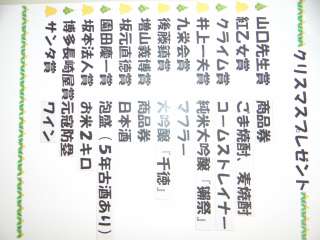 クリスマスプレゼント
山口先生賞　商品券
紅乙女賞　ごま焼酎、麦焼酎
クライム賞　コームストレイナー
井上一夫賞　純米大吟醸「獺祭」
九栄会賞　マフラー
後藤顕賞　大吟醸「千徳」
増山義博賞　商品券
坂元直徳賞　日本酒
園田慶一賞　泡盛（5年古酒あり）
坂本法人賞　お米2キロ
博多長崎屋賞元寇防塁
サンタ賞　ワイン